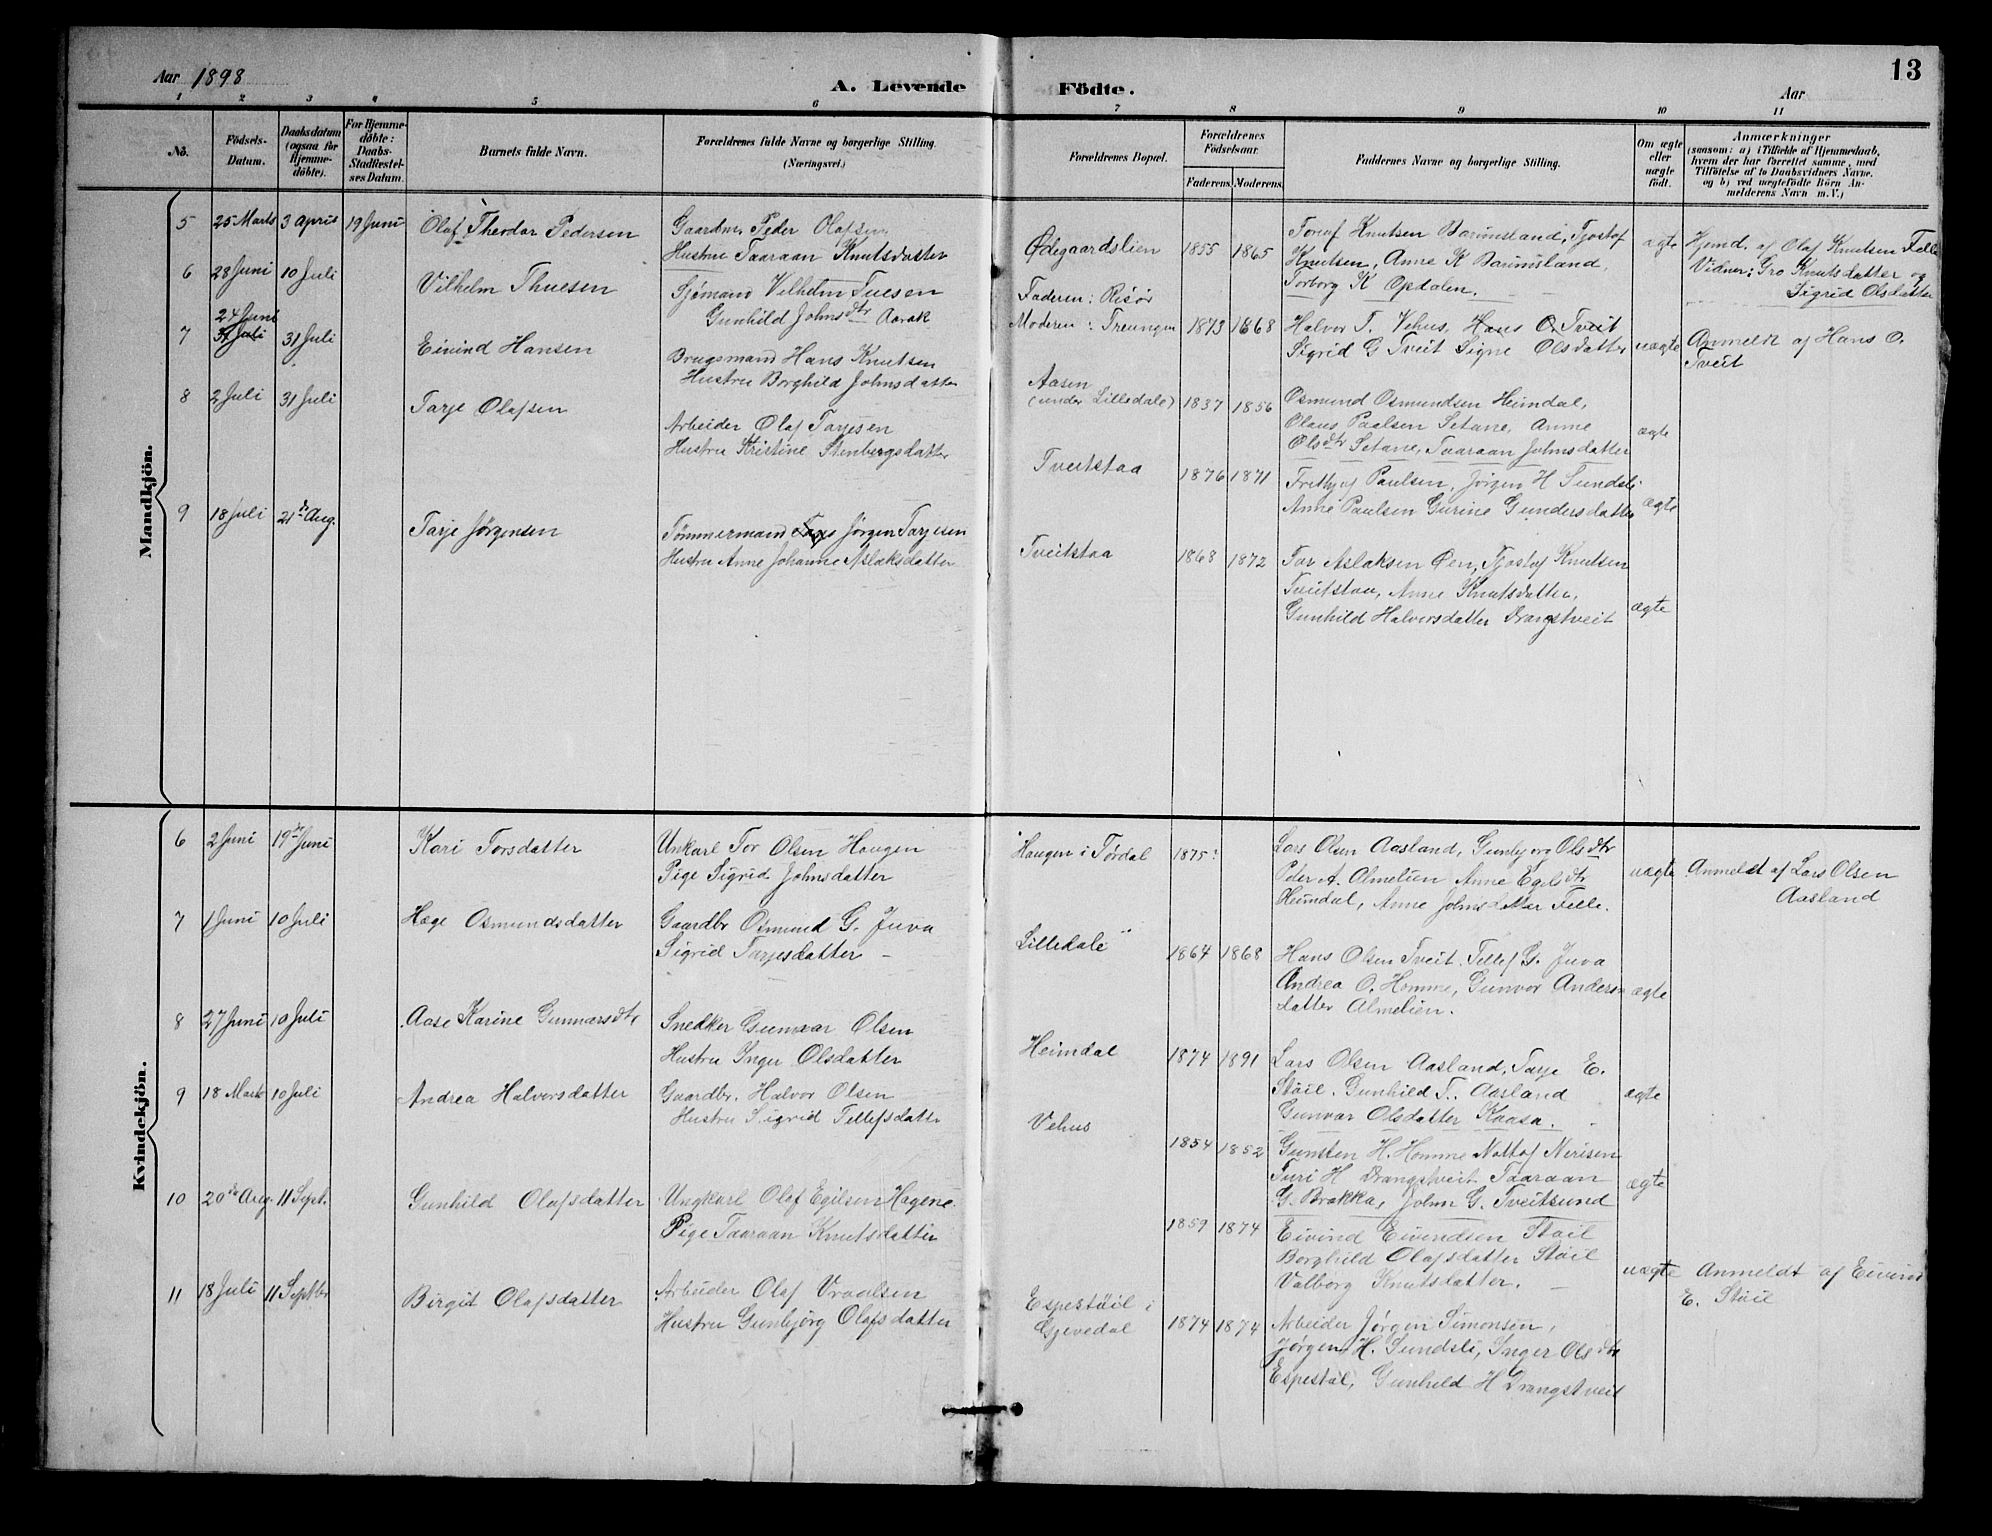 Aar 1898
A. Levende Födte.
Aar
13
1 2 3 4 5 6 7 8 9 10 11
No.
Födsels-Datum.
Daabsdatum (ogsaa for Hjemmedöbte).
For Hjemmedöbte: Daabs-Stadfestelses Datum.
Barnets fulde Navn.
Forældrenes fulde Navne og borgerlige Stilling. (Næringsvei.)
Forældrenes Bopæl.
Forældrenes Födselsaar.
Faderens. Moderens.
Faddernes Navne og borgerlige Stilling.
Om ægte eller uægte födt.
Anmærkninger
(saasom: a) i Tilfælde af Hjemmedaab,
hvem der har forrettet samme, med
Tilföielse af to Daabsvidners Navne.
og b) ved uægtefödte Börn An-
melderens Navn m. V.)
Mandkjön.
5 25 Marts 3 April 19 Juni Olaf Theodor Pedersen
Gaardm. Peder Olafsen
Hustru Taaraan Knutsdatter
Ødegaardslien 1855 1865
Toraf Knutsen Barunsland, Tjostof
Knutsen, Anne K Barunsland,
Torborg K Opdalen.
ægte
Hjemd. af Olaf Knutsen Felle
Vidner: Gro Knutsdatter og
Sigrid Olsdatter
6 28 Juni 10 Juli Vilhelm Thuesen
Sjömand Vilhelm Tuesen
Gunhild Johnsdtr Aarak
Faderen: Risör
Moderen: Treungen 1873 1868
Halvor T. Vehus, Hans O. Tveit
Sigrid G Tveit Signe Olsdatter
uægte
Anmeldt af Hans O.
Tveit
24 Juni
7 31 Juli 31 Juli Eivind Hansen
Brugsmand Hans Knutsen
Hustru Borghild Johnsdatter
Aasen
(under Lilledale) 1837 1856
Osmund Osmundsen Heimdal,
Olaus Paalsen Setane, Anne
Olsdtr Setane, Taaraan Johnsdatter
ægte
8 2 Juli 31 Juli Tarje Olafsen
Arbeider Olaf Tarjesen
Hustru Kristine Stenbergsdatter
Tveitstaa 1876 1871
Frithjof Paulsen, Jörgen H Sundsli
Anne Paulsen Gurine Gundersdatter
ægte
9 18 Juli 21de Aug. Tarje Jørgensen
Tømmermand Jörgen Tarjesen
Hustru Anne Johanne Aslaksdatter
Tveitstaa 1868 1872
Tor Aslaksen Øen, Tjostof Knutsen
Tveitstaa, Anne Knutsdatter,
Gunhild Halversdatter Drangstveit
ægte
Kvindekjön.
6 2 Juni 19de Juni Kari Torsdatter
Unkarl Tor Olsen Haugen
Pige Sigrid Johnsdatter
Haugen i Tørdal 1875:
Lars Olsen Aasland, Gunbjorg Olsdtr
Peter A. Almelien Anne Egelsdtr
Heimdal, Anne Johnsdatter Felle.
uægte
Anmeldt af Lars Olsen
Aasland
7 1 Juni 10 Juli Hæge Osmundsdatter
Gaardbr Osmund G. Juva
Sigrid Tarjesdatter
Lilledale 1864 1868
Hans Olsen Tveit. Tellef G. Juva
Andrea O. Homme, Gunvor Anders-
datter Almelien.
ægte
8 27 Juni 10 Juli Aase Karine Gunnarsdtr
Snedker Gunnar Olsen
Hustru Inger Olsdatter
Heimdal 1874 1891
Lars Olsen Aasland, Tarje E.
Støil. Gunhild T. Aasland
Gunvar Olsdatter Kaasa.
ægte
9 18 Marts 10 Juli Andrea Halversdatter
Gaardbr. Halvor Olsen
Hustru Sigrid Tellefsdatter
Vehus 1854 1852
Gunsten H. Homme Nottof Nirisen
Turi H Drangstveit Taaraan
G. Brakka, John G. Tveitsund
ægte
10 20de Aug. 11 Sept. Gunhild Olafsdatter
Ungkarl Olaf Egilsen Hagene
Pige Taaraan Knutsdatter
1859 1874
Eivind Eivindsen Støil
Borghild Olafsdatter Støil
Valborg Knutsdatter.
uægte
Anmeldt af Eivind
E. Støil
11 18 Juli 11 Septbr Birgit Olafsdatter
Arbeider Olaf Vraalsen
Hustru Gunbjørg Olafsdatter
Espestøil i
Gjevedal 1874 1874
Arbeider Jørgen Simonsen,
Jørgen H. Sundsli, Inger Olsdtr
Espestøl, Gunhild H Drangstveit